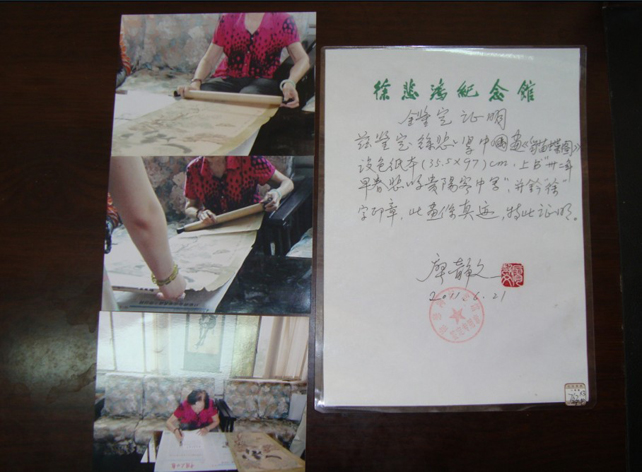 徐悲鸿纪念馆
鉴定证明
兹鉴定：徐悲鸿中国画
设色纸本(33.5×97)cm，上书"卅二年
早春悲鸿贵阳客中写"并钤"徐"
字印章，此画系真迹，特此证明。
廖静文
2011.6.21